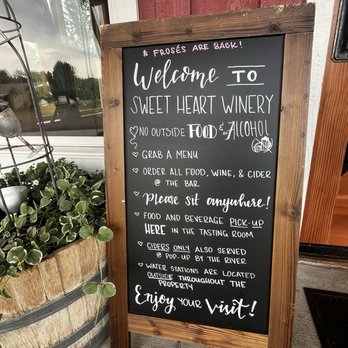 * FROSÉS ARE BACK!
Welcome TO
SWEET HEART WINERY
NO OUTSIDE FOOD & ALCOHOL
GRAB A MENU
ORDER ALL FOOD, WINE, & CIDER
@ THE BAR
Please sit anywhere!
FOOD AND BEVERAGE PICK-UP
HERE IN THE TASTING ROOM
CIDERS ONLY ALSO SERVED
@ POP-UP BY THE RIVER
WATER STATIONS ARE LOCATED
OUTSIDE THROUGHOUT THE
PROPERTY
Enjoy YOUR Visit!